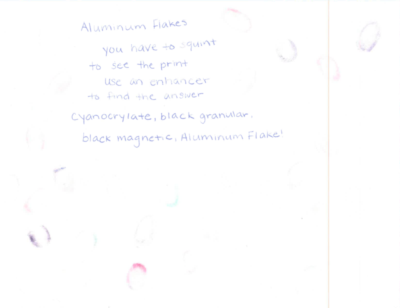 Aluminum Flakes
you have to squint
to see the print
use an enhancer
to find the answer
Cyanocrylate, black granular,
black magnetic, Aluminum Flake!